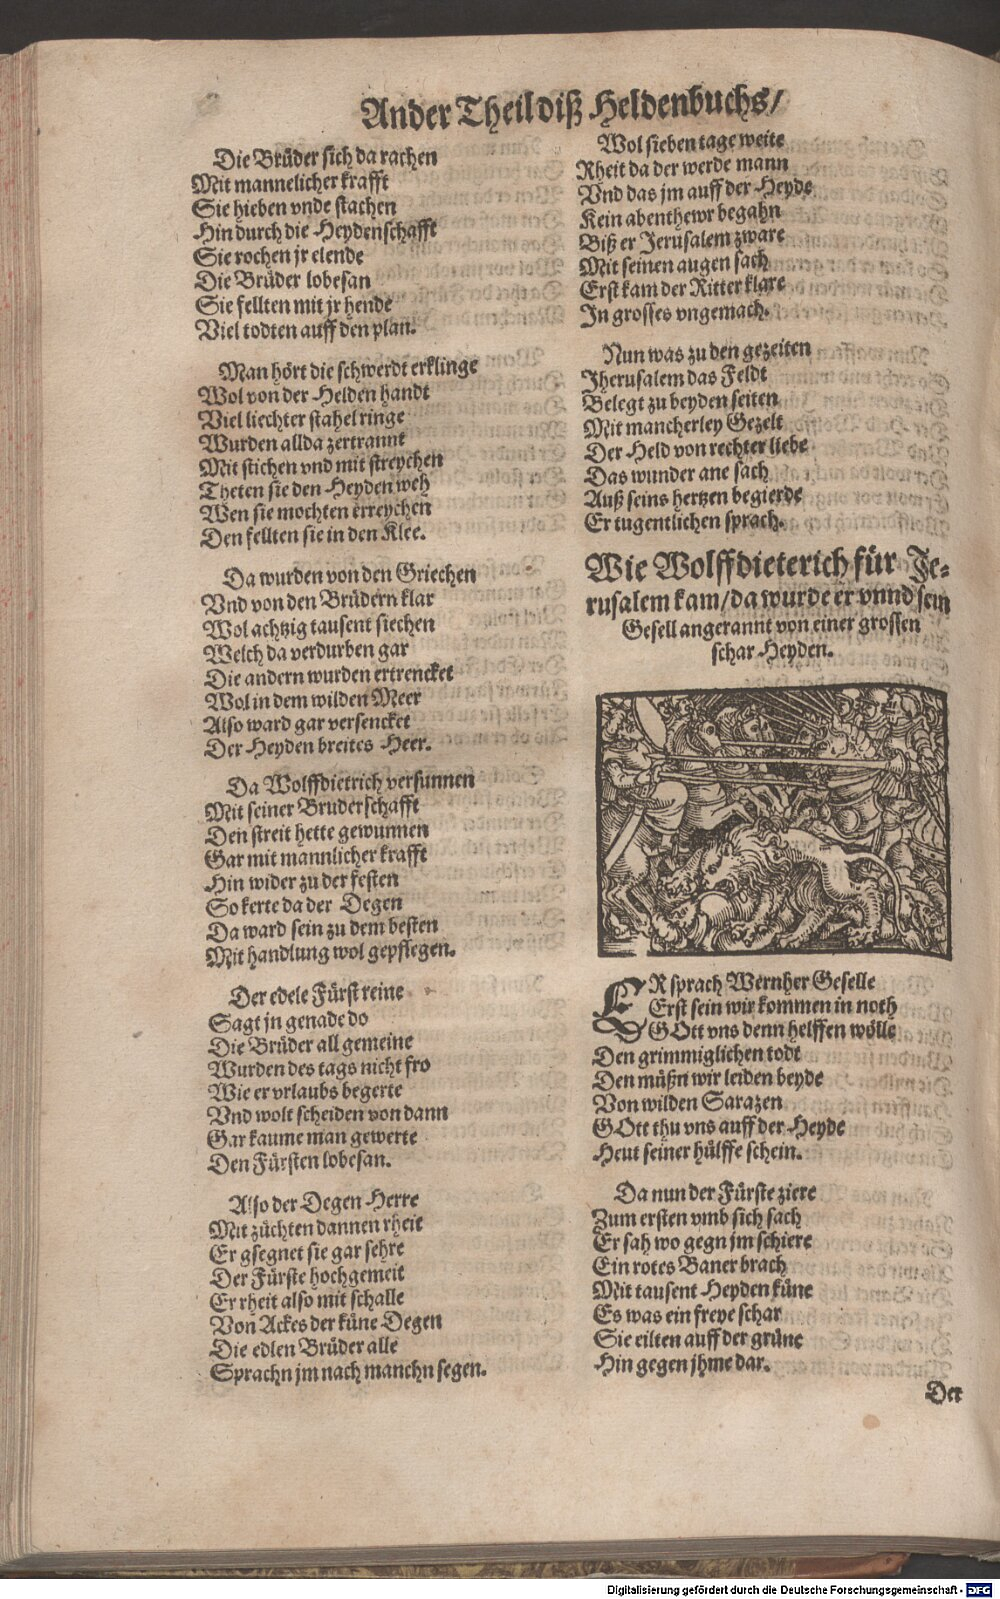 Ander Theil diß Heldenbuchs/
Die Brüder sich da rachen
Mit mannelicher krafft
Sie hieben vnde stachen
Hin durch die Heydenschafft
Sie rochen jr elende
Die Brüder lobesan
Sie fellten mit jr hende
Viel todten auff den plan.
Man hört die schwerdt erklinge
Wol von der Helden handt
Viel liechter stahel ringe
Wurden allda zertrannt
Mit stichen vnd mit streychen
Theten sie den Heyden weh
Wen sie mochten erreychen
Den fellten sie in den Klee.
Da wurden von den Griechen
Vnd von den Brüdern klar
Wol achtzig tausent siechen
Welch da verdurben gar
Die andern wurden ertrencket
Wol in dem wilden Meer
Also ward gar versencket
Der Heyden breites Heer.
Da Wolffdietrich versunnen
Mit seiner Bruderschafft
Den streit hette gewunnen
Gar mit mannlicher krafft
Hin wider zu der festen
So kerte da der Degen
Da ward sein zu dem besten
Mit handlung wol gepflegen.
Der edele Fürst reine
Sagt jn genade do
Die Brüder all gemeine
Wurden des tags nicht fro
Wie er vrlaubs begerte
Vnd wolt scheiden von dann
Gar kaume man gewerte
Den Fürsten lobesan.
Also der Degen Herre
Mit züchten dannen rheit
Er gsegnet sie gar sehre
Der Fürste hochgemeit
Er rheit also mit schalle
Von Ackes der küne Degen
Die edlen Brüder alle
Sprachn jm nach manchn segen.
Wol sieben tage weite
Rheit da der werde mann
Vnd das jm auff der Heyde
Kein abenthewr begahn
Biß er Jerusalem zware
Mit seinen augen sach
Erst kam der Ritter klare
In grosses vngemach.
Nun was zu den gezeiten
Jherusalem das Feldt
Belegt zu beyden seiten
Mit mancherley Gezelt
Der Held von rechter liebe
Das wunder ane sach
Auß seins hertzen begierde
Er tugentlichen sprach.
Wie Wolffdieterich für Je-
rusalem kam/da wurde er vnnd sein
Gesell angerannt von einer grossen
schar Heyden.
ER sprach Wernher Geselle
Erst sein wir kommen in noth
GOtt vns denn helffen wölle
Den grimmiglichen todt
Den müßn wir leiden beyde
Von wilden Sarazen
GOtt thu vns auff der Heyde
Heut seiner hülffe schein.
Da nun der Fürste ziere
Zum ersten vmb sich sach
Er sah wo gegn jm schiere
Ein rotes Baner brach
Mit tausent Heyden küne
Es was ein freye schar
Sie eilten auff der grüne
Hin gegen jhme dar.
Der
Digitalisierung gefördert durch die Deutsche Forschungsgemeinschaft - DFG